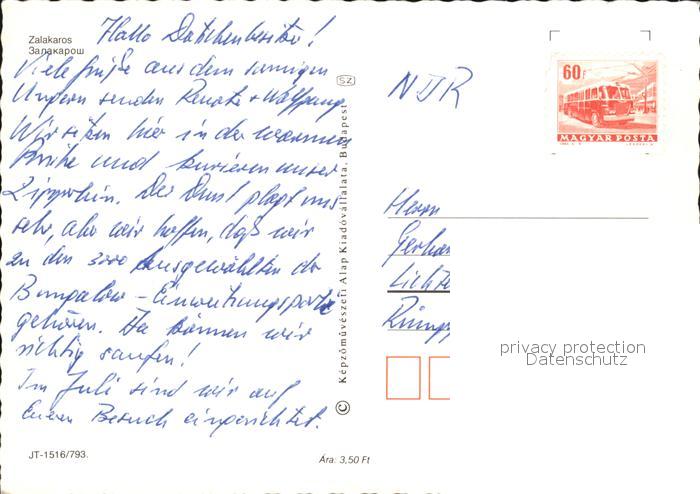 Zalakaros
Залакарош
Hallo Datschenbesitzer!
Viele Grüße aus dem sonnigen
Ungarn senden Renate + Wolfgang.
Wir sitzen hier in der warmen
Brühe und kurieren unser
Zipperlein. Der Durst plagt uns
sehr, aber wir hoffen, daß wir
zu den 3000 Ausgewählten der
Bungalow-Einweihungsparty
gehören. Da können wir
richtig saufen!
Im Juli sind wir auf
Euren Besuch eingerichtet.
JT-1516/793.
Ára: 3,50 Ft
SZ
© Képzőművészeti Alap Kiadóvállalata, Budapest
60f
MAGYAR POSTA
Herrn
Gerhar
Lichte
privacy protection
Datenschutz